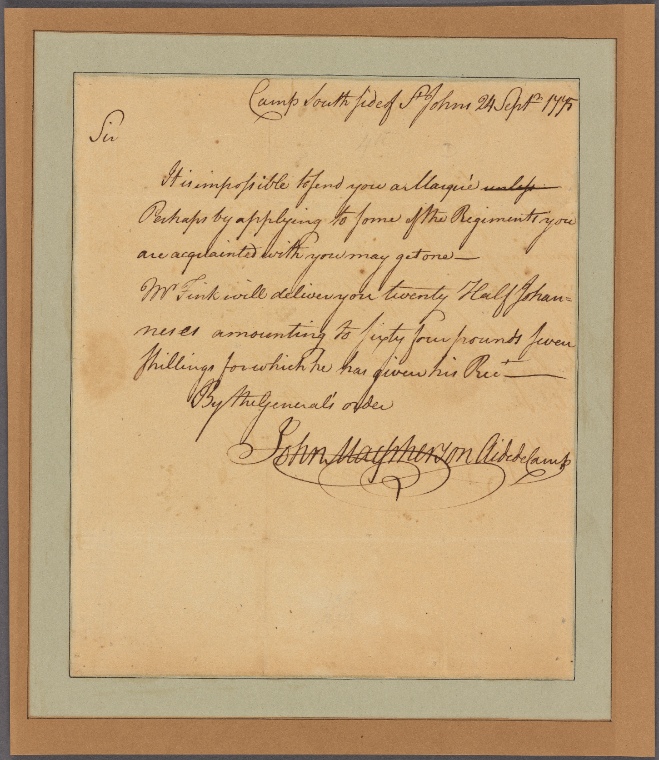 Camp South side of St. Johns 24 Septr. 1775
Sir
It is impossible to send you a Marquie unless
Perhaps by applying to some of the Regiments you
are acquainted with you may get one—
Mr Fink will deliver you twenty Half Johan=
neses amounting to sixty four pounds seven
shillings for which he has given his Rect—
By the General's order
John Macpherson Aid de Camp